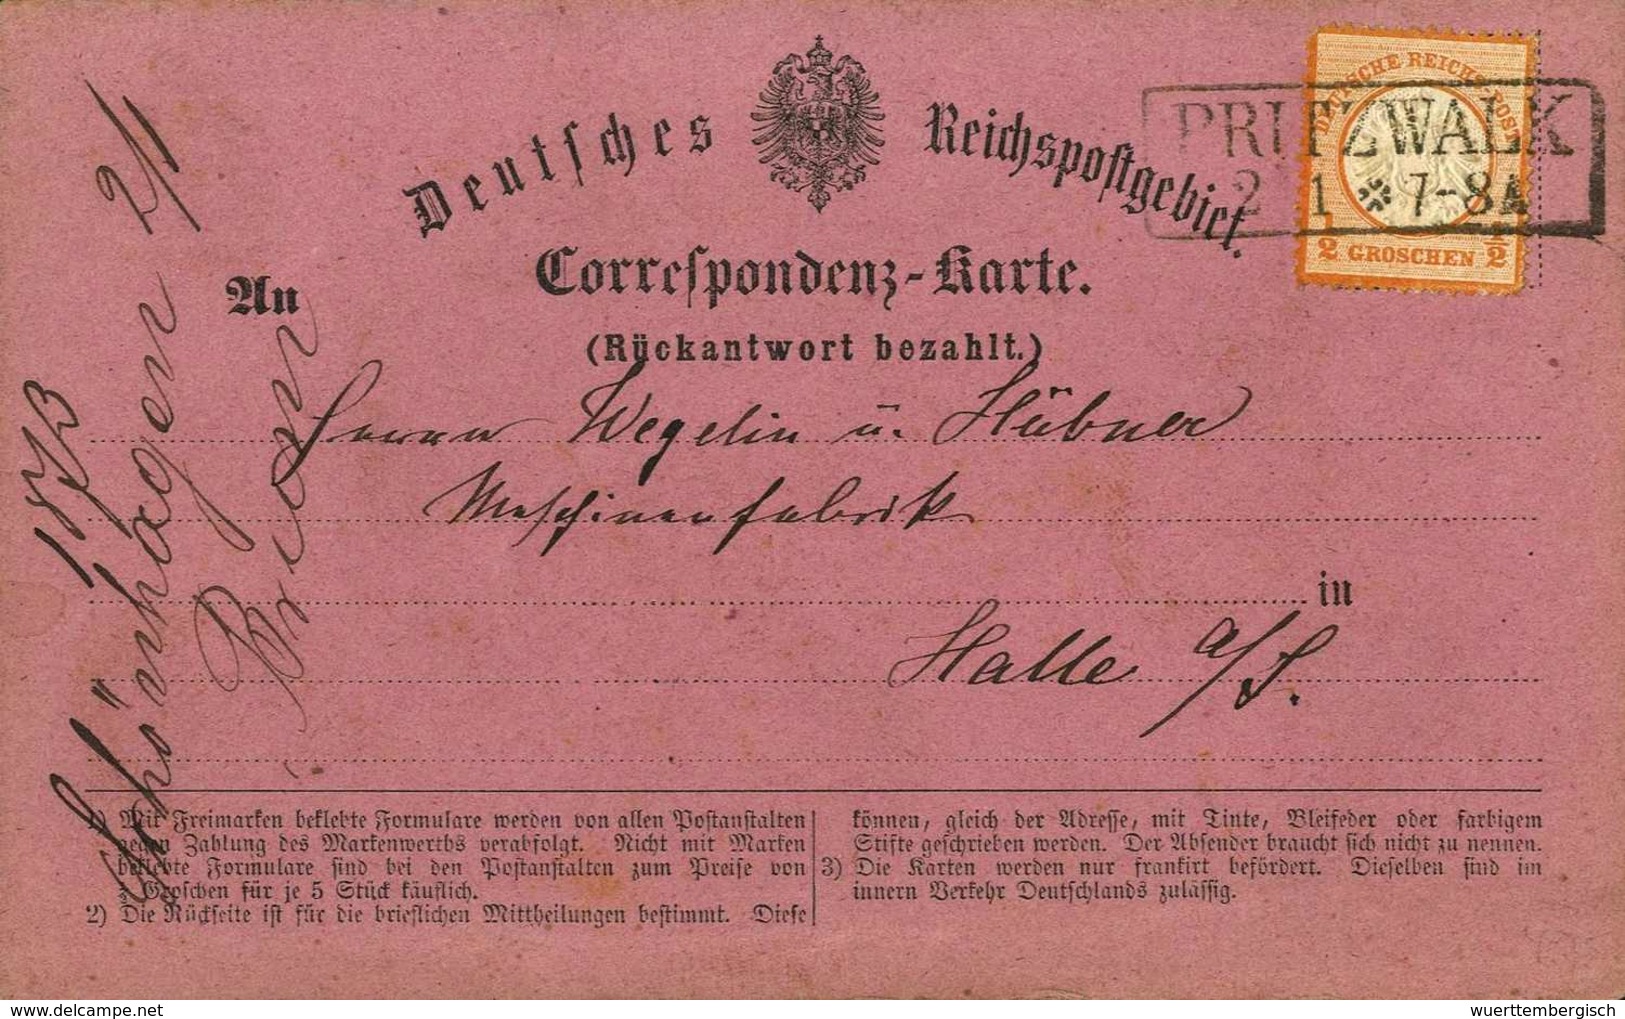 Deutsches Reichspostgebiet.
DEUTSCHE REICHS-POST
½ GROSCHEN ½
PRITZWALK
2 1 7-8A
Correspondenz-Karte.
(Rückantwort bezahlt.)
An
Herren Wegelin u. Hübner
Maschinenfabrik
in
Halle a/S.
Schönhagen 2/1
1873
1) Mit Freimarken beklebte Formulare werden von allen Postanstalten
gegen Zahlung des Markenwerths verabfolgt. Nicht mit Marken
beklebte Formulare sind bei den Postanstalten zum Preise von
½ Groschen für je 5 Stück käuflich.
2) Die Rückseite ist für die brieflichen Mittheilungen bestimmt. Diese
können, gleich der Adresse, mit Tinte, Bleifeder oder farbigem
Stifte geschrieben werden. Der Absender braucht sich nicht zu nennen.
3) Die Karten werden nur frankirt befördert. Dieselben sind im
innern Verkehr Deutschlands zulässig.
wuerttembergisch